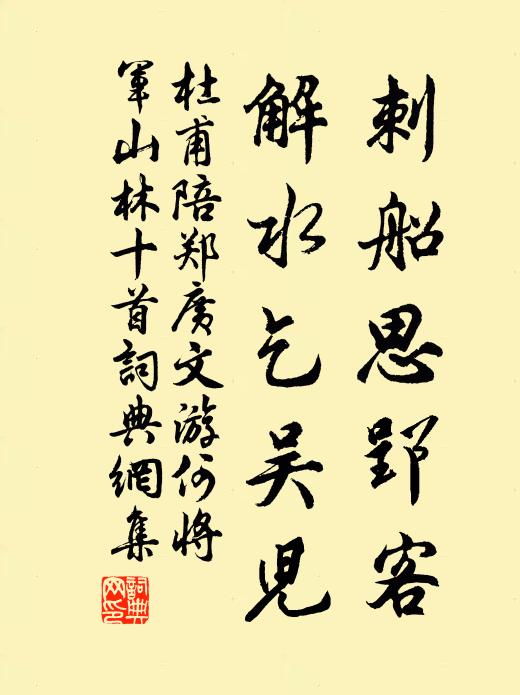 刺船思郢客
解水乞吴児
杜甫陪郑廣文游何將
軍山林十首詞典網集
詞典網印